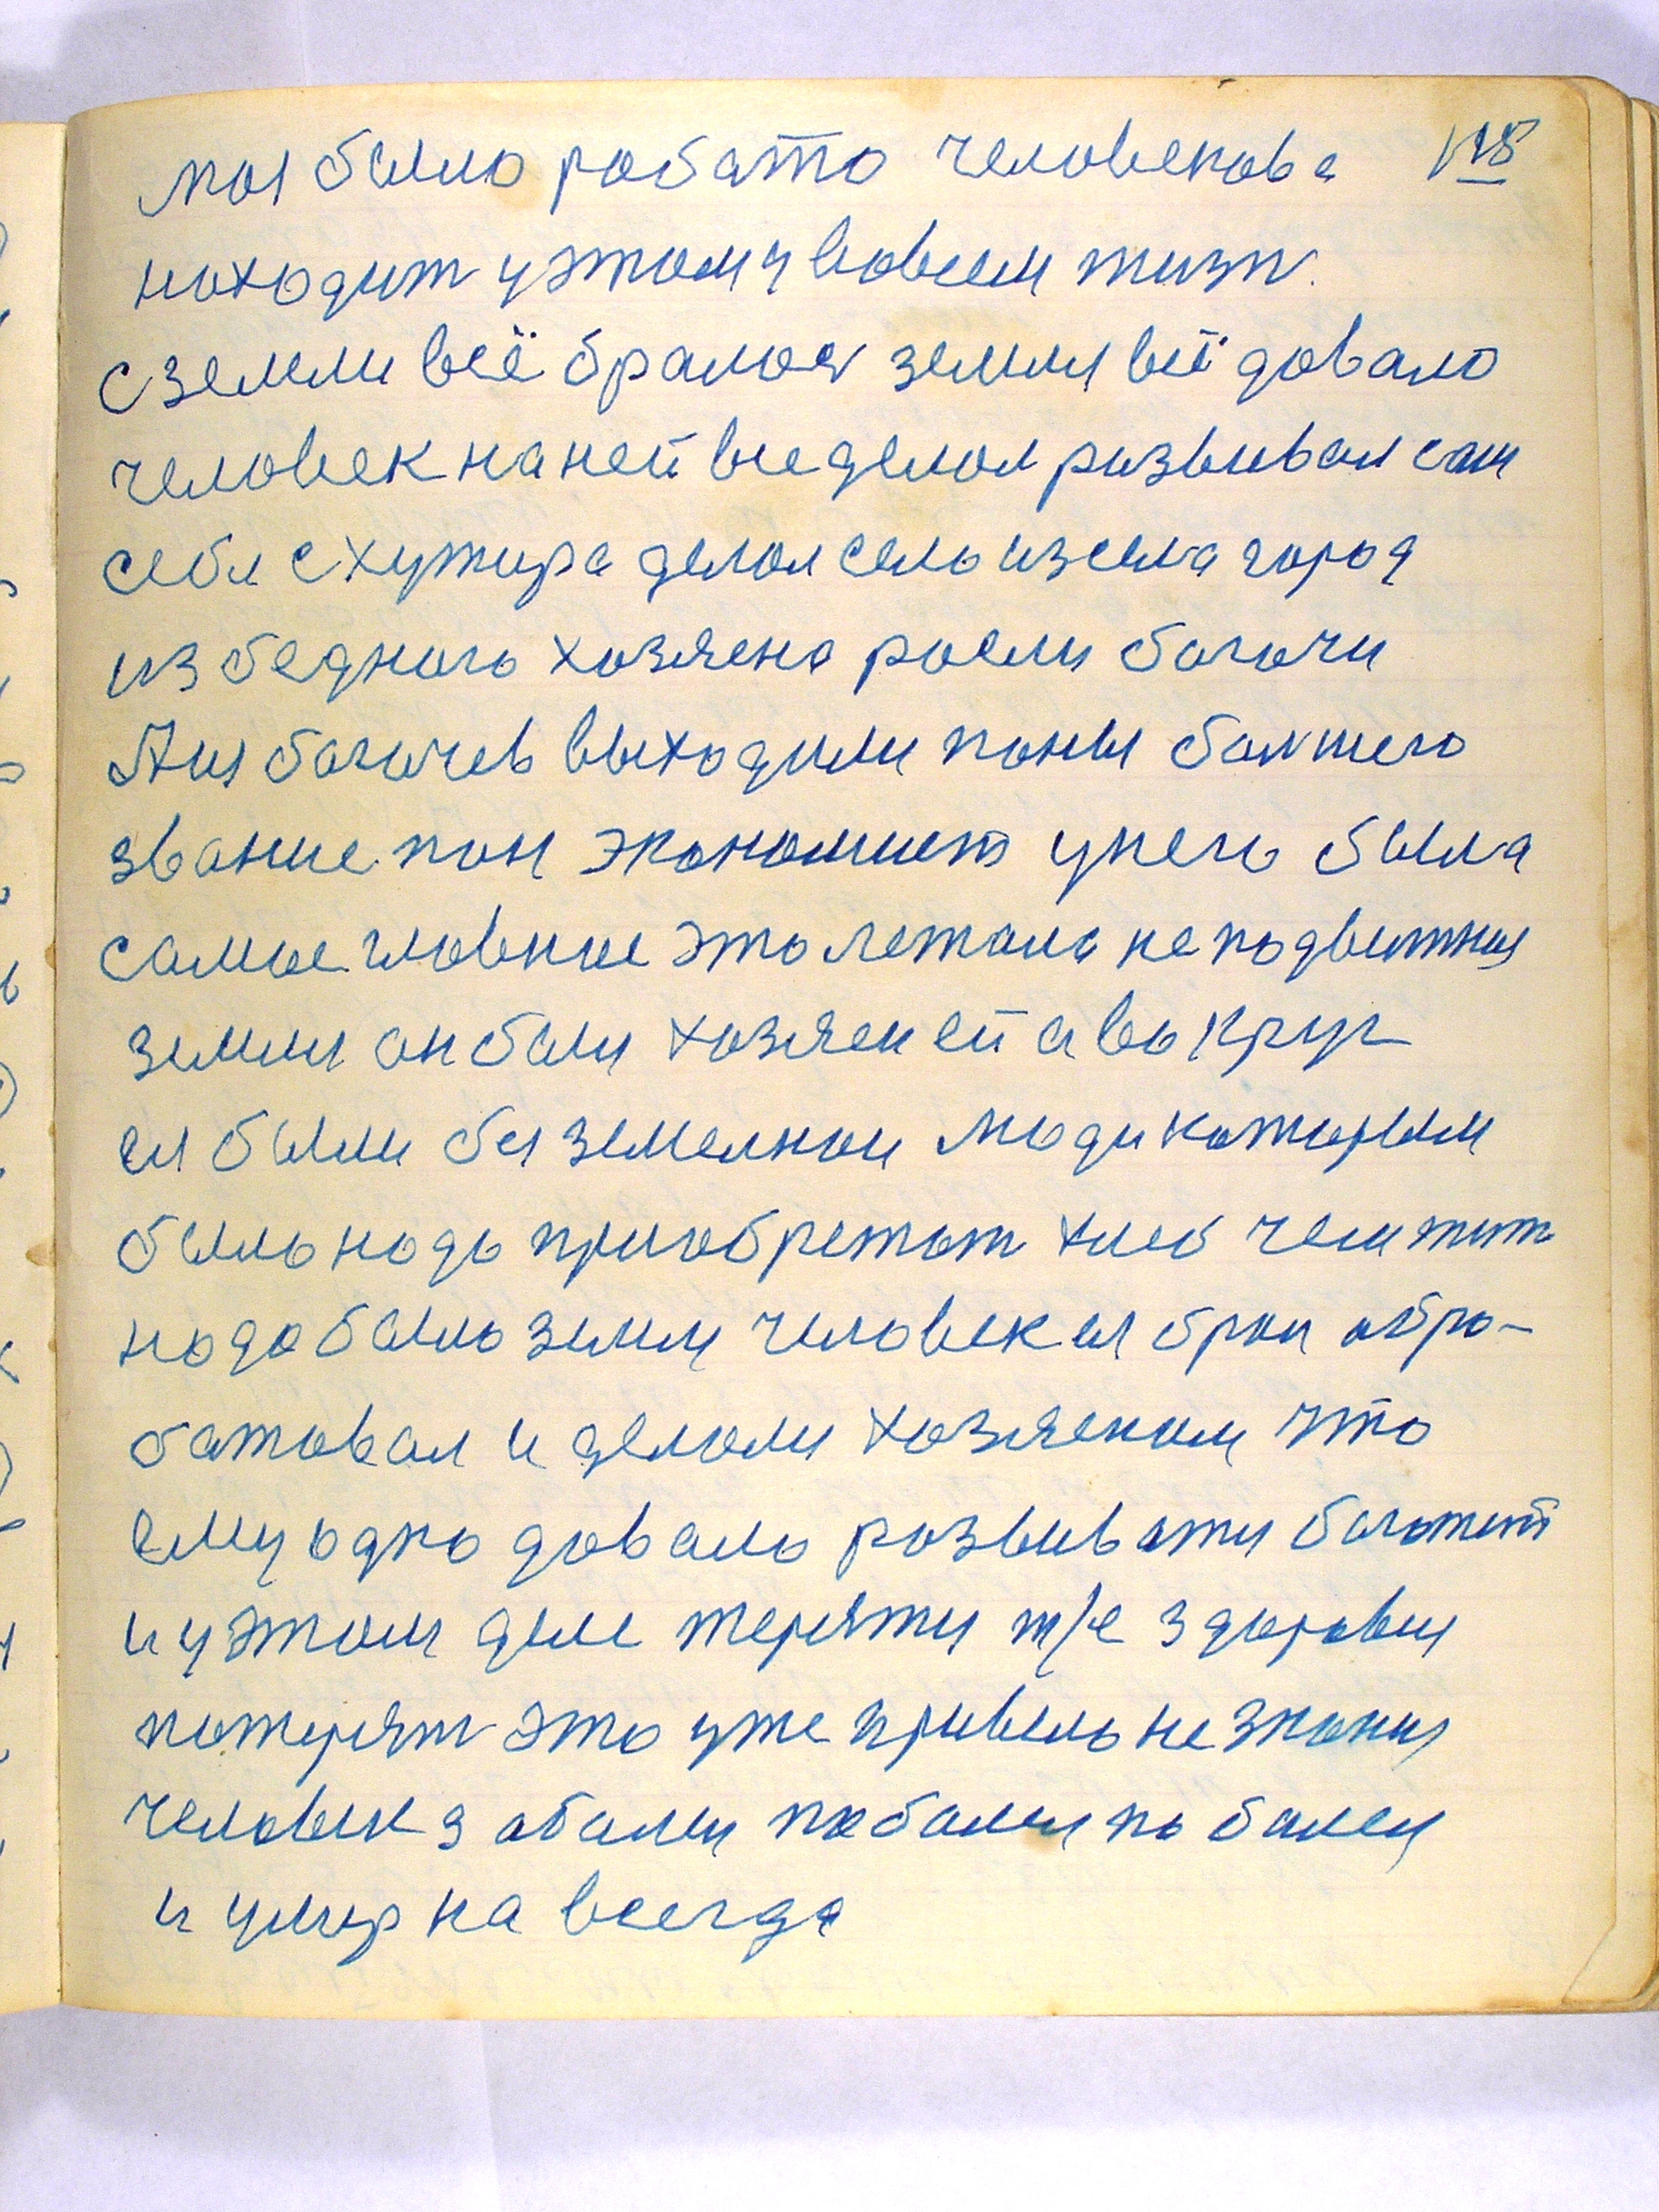 моя было работа человекова 118
находит у этому вовсем жизн.
с земли всё бралося земля всё давало
человек на ней все делал развивал сам
себя с хутира делал село из села город
из бедного хозяена росли богачи
А из богачев выходили паны болшего
звание пан экономист у него была
самое главное это лежала неподвижная
земля он был хозяен ей а вокруг
ея были без земелнои люди каторым
было надо приобретат хлеб чем жит
надо было земля человек ея брал обра-
батовал и делал хозяеном что
ему одно давало развивати богатет
и у этом деле теряти т/е здоровия
потерят это уже привело незнания
человек заболел поболел поболел
и умер на всегда